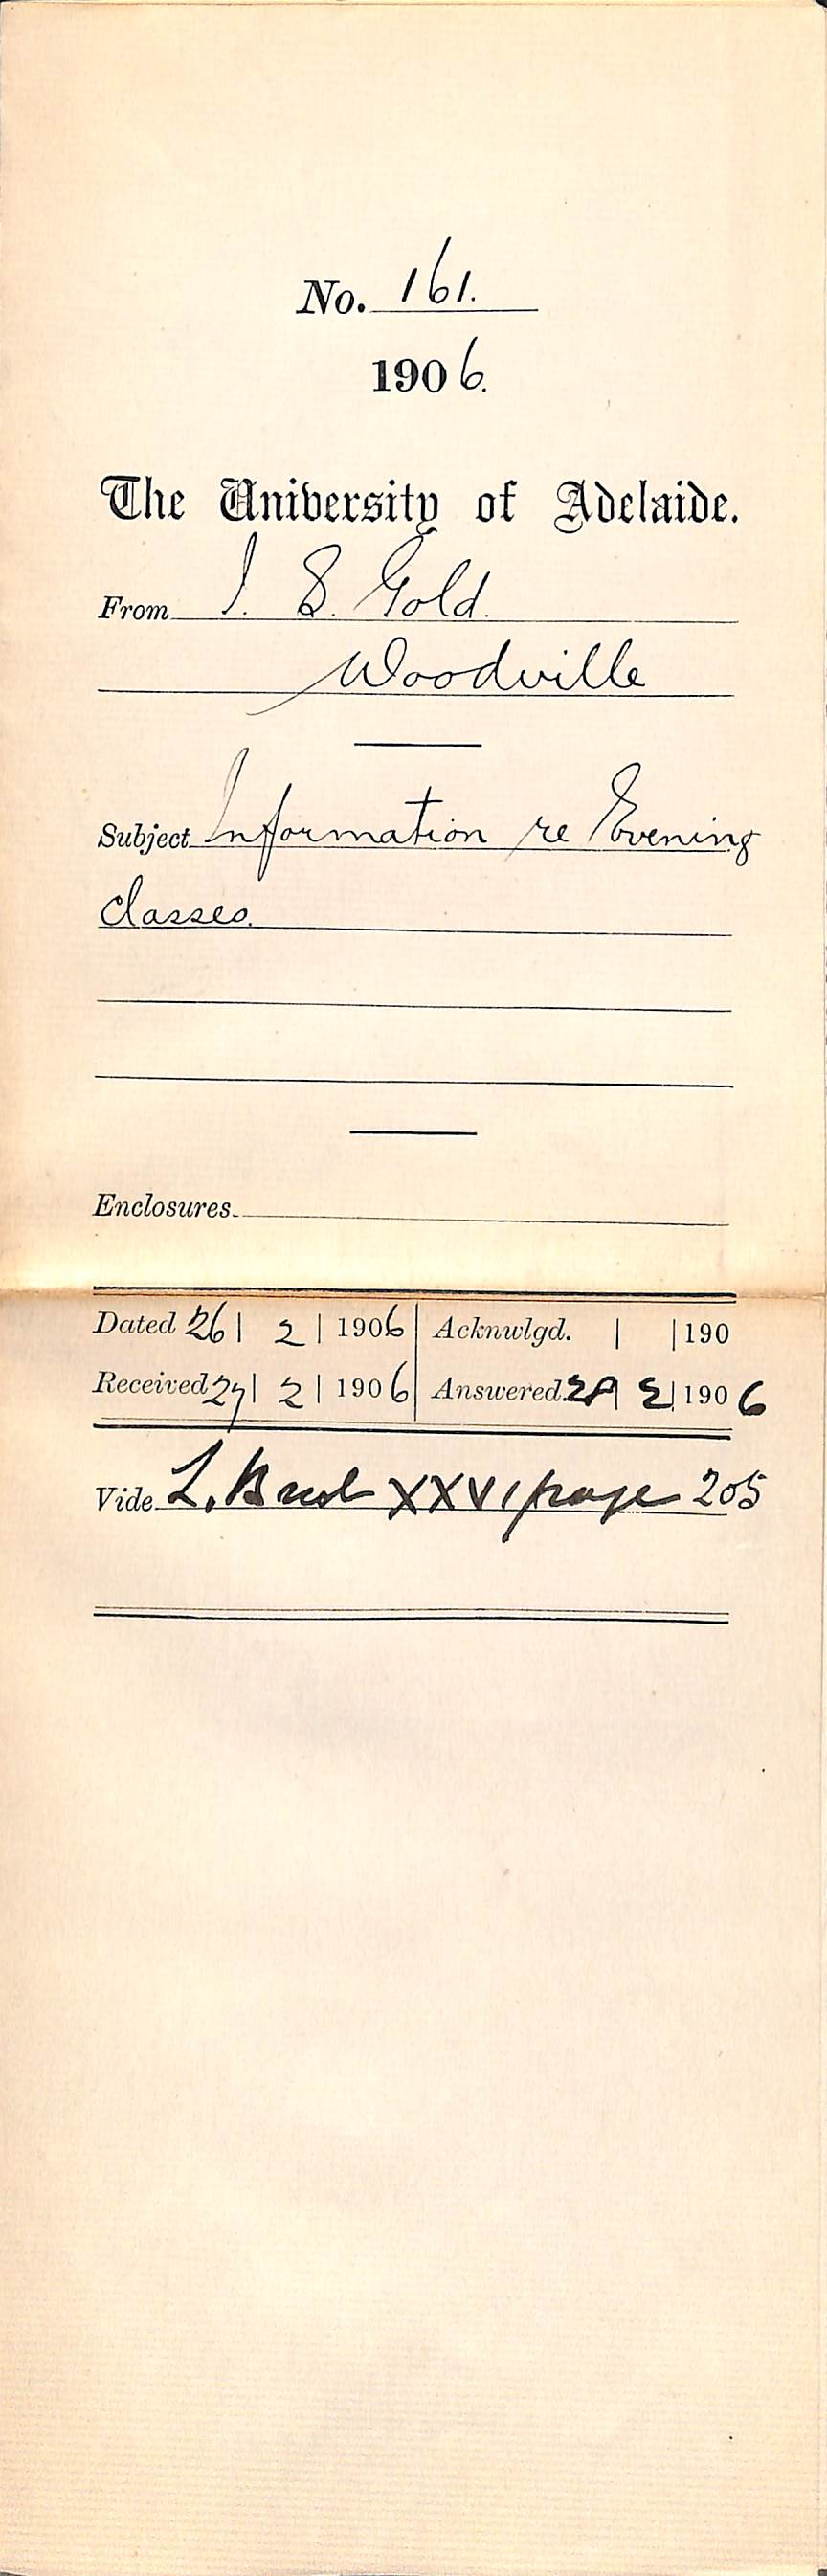 No. 161.
1906.
The University of Adelaide.
From I. S. Gold.
Woodville
Subject Information re Evening
classes.
Enclosures
Dated 26 | 2 | 1906 | Acknwlgd. | | 190
Received 27 | 2 | 1906 | Answered. 28 | 2 | 1906
Vide L. Book XXVI page 205